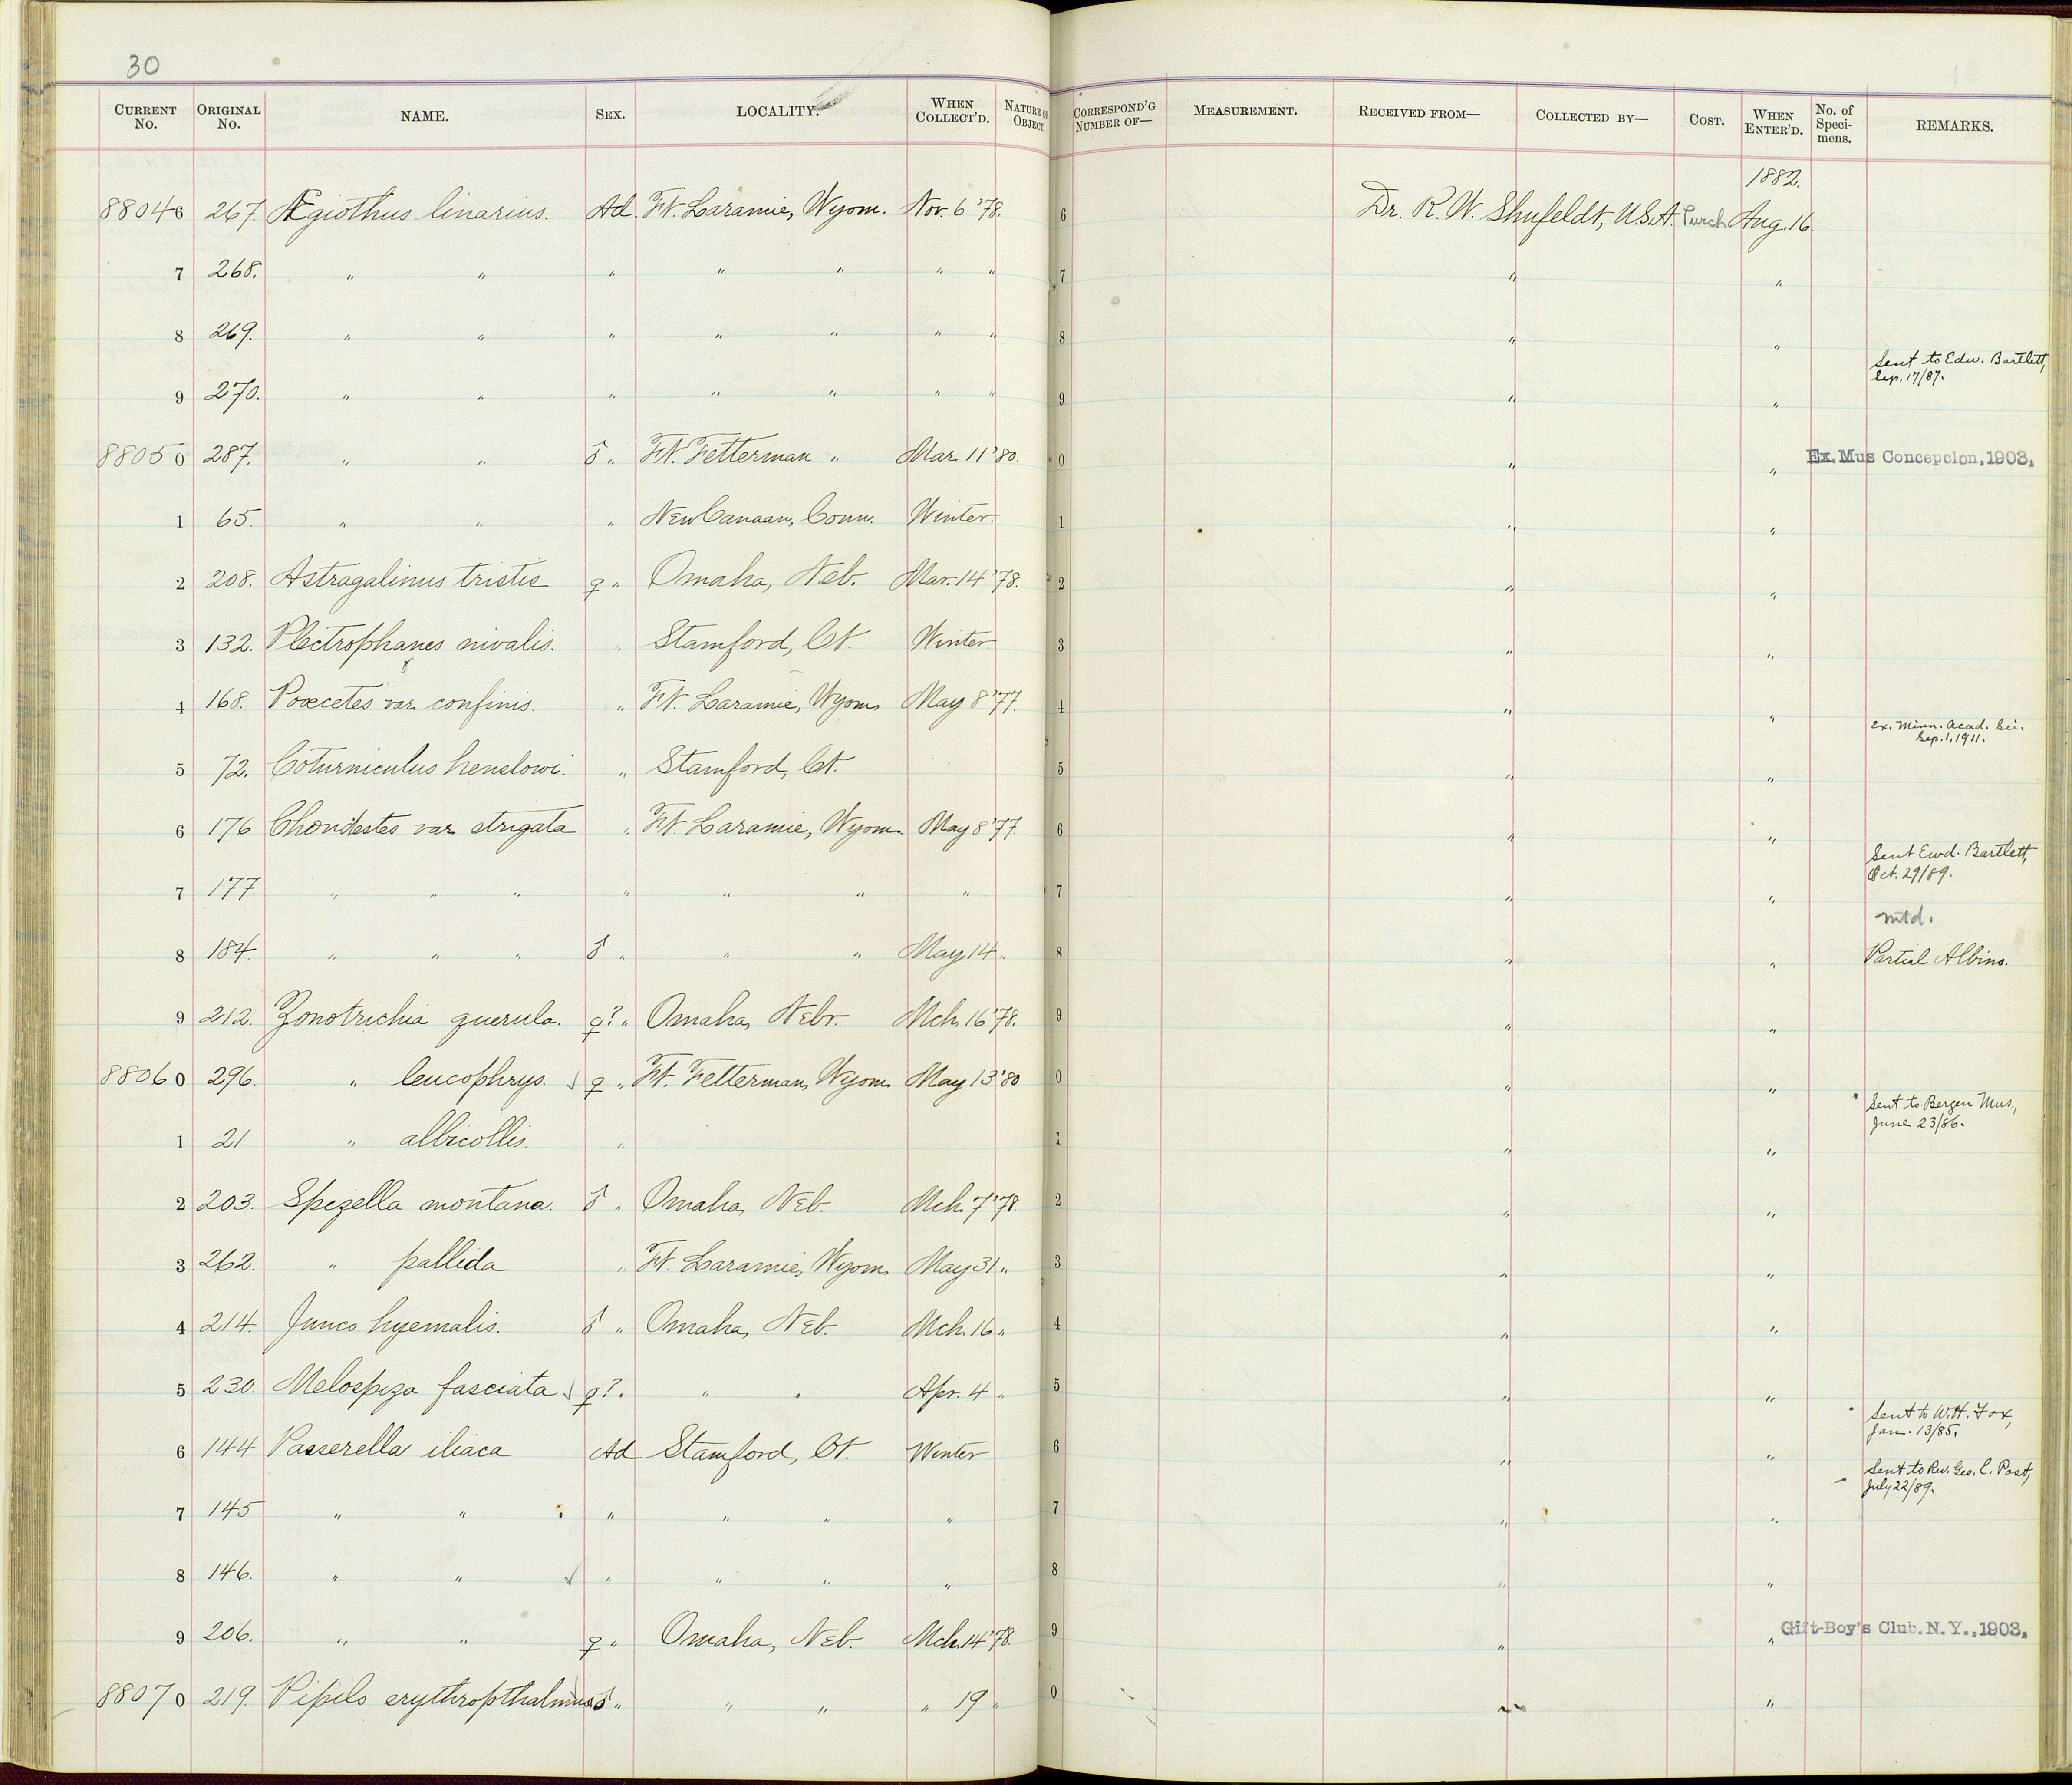 30
CURRENT No. ORIGINAL No. NAME. SEX. LOCALITY. WHEN COLLECT'D. NATURE OF OBJECT. CORRESPOND'G NUMBER OF— MEASUREMENT. RECEIVED FROM— COLLECTED BY— COST. WHEN ENTER'D. No. of Specimens. REMARKS.
1882.
88046 267. Ægiothus linarius. Ad. Ft. Laramie, Wyom. Nov. 6 '78. 6 Dr. R. W. Shufeldt, U.S.A. Purch Aug. 16.
7 268. " " " " " " " 7 " "
8 269. " " " " " " " 8 " "
Sent to Edw. Bartlett,
Sep. 17/87.
9 270. " " " " " " " 9 " "
88050 287. " " ♂ " Ft. Fetterman " Mar. 11 '80. 0 " " Ex. Mus Concepcion, 1903.
1 65. " " " New Canaan, Conn. Winter. 1 " "
2 208. Astragalinus tristis ♀ " Omaha, Neb. Mar. 14 '78. 2 " "
3 132. Plectrophanes nivalis. " Stamford, Ct. Winter 3 " "
4 168. Poœcetes var. confinis. " Ft. Laramie, Wyom. May 8 '77. 4 " "
Ex. Minn. Acad. Sci.
Sep. 1, 1911.
5 72. Coturniculus henslowi. " Stamford, Ct. 5 " "
6 176 Chondestes var. strigata " Ft. Laramie, Wyom. May 8 '77. 6 " "
Sent Ewd. Bartlett,
Oct. 29/89.
7 177. " " " " " " " 7 " "
mtd.
8 184. " " " ♂ " " " May 14 " 8 " " Partial Albino.
9 212. Zonotrichia querula. ♀? " Omaha, Nebr. Mch. 16 '78. 9 " "
88060 296. " leucophrys. ✓ ♀ " Ft. Fetterman, Wyom. May 13 '80 0 " "
Sent to Bergen Mus.,
June 23/86.
1 21 " albicollis. " 1 " "
2 203. Spizella montana. ♂ " Omaha, Neb. Mch. 7 '78 2 " "
3 262. " pallida " Ft. Laramie, Wyom. May 31 " 3 " "
4 214. Junco hyemalis. ♂ " Omaha, Neb. Mch. 16 " 4 " "
5 230. Melospiza fasciata ✓ ♀? " " " Apr. 4 " 5 " "
Sent to W. H. Fox,
Jan. 13/85.
6 144 Passerella iliaca Ad Stamford, Ct. Winter 6 " "
Sent to Rev. Geo. E. Post,
July 22/89.
7 145 " " " " " " 7 " "
8 146. " " ✓ " " " " 8 " "
9 206. " " ♀ " Omaha, Neb. Mch. 14 '78. 9 " " Gift-Boy's Club. N. Y., 1903.
88070 219. Pipilo erythropthalmus ♂ " " " " 19 " 0 " "